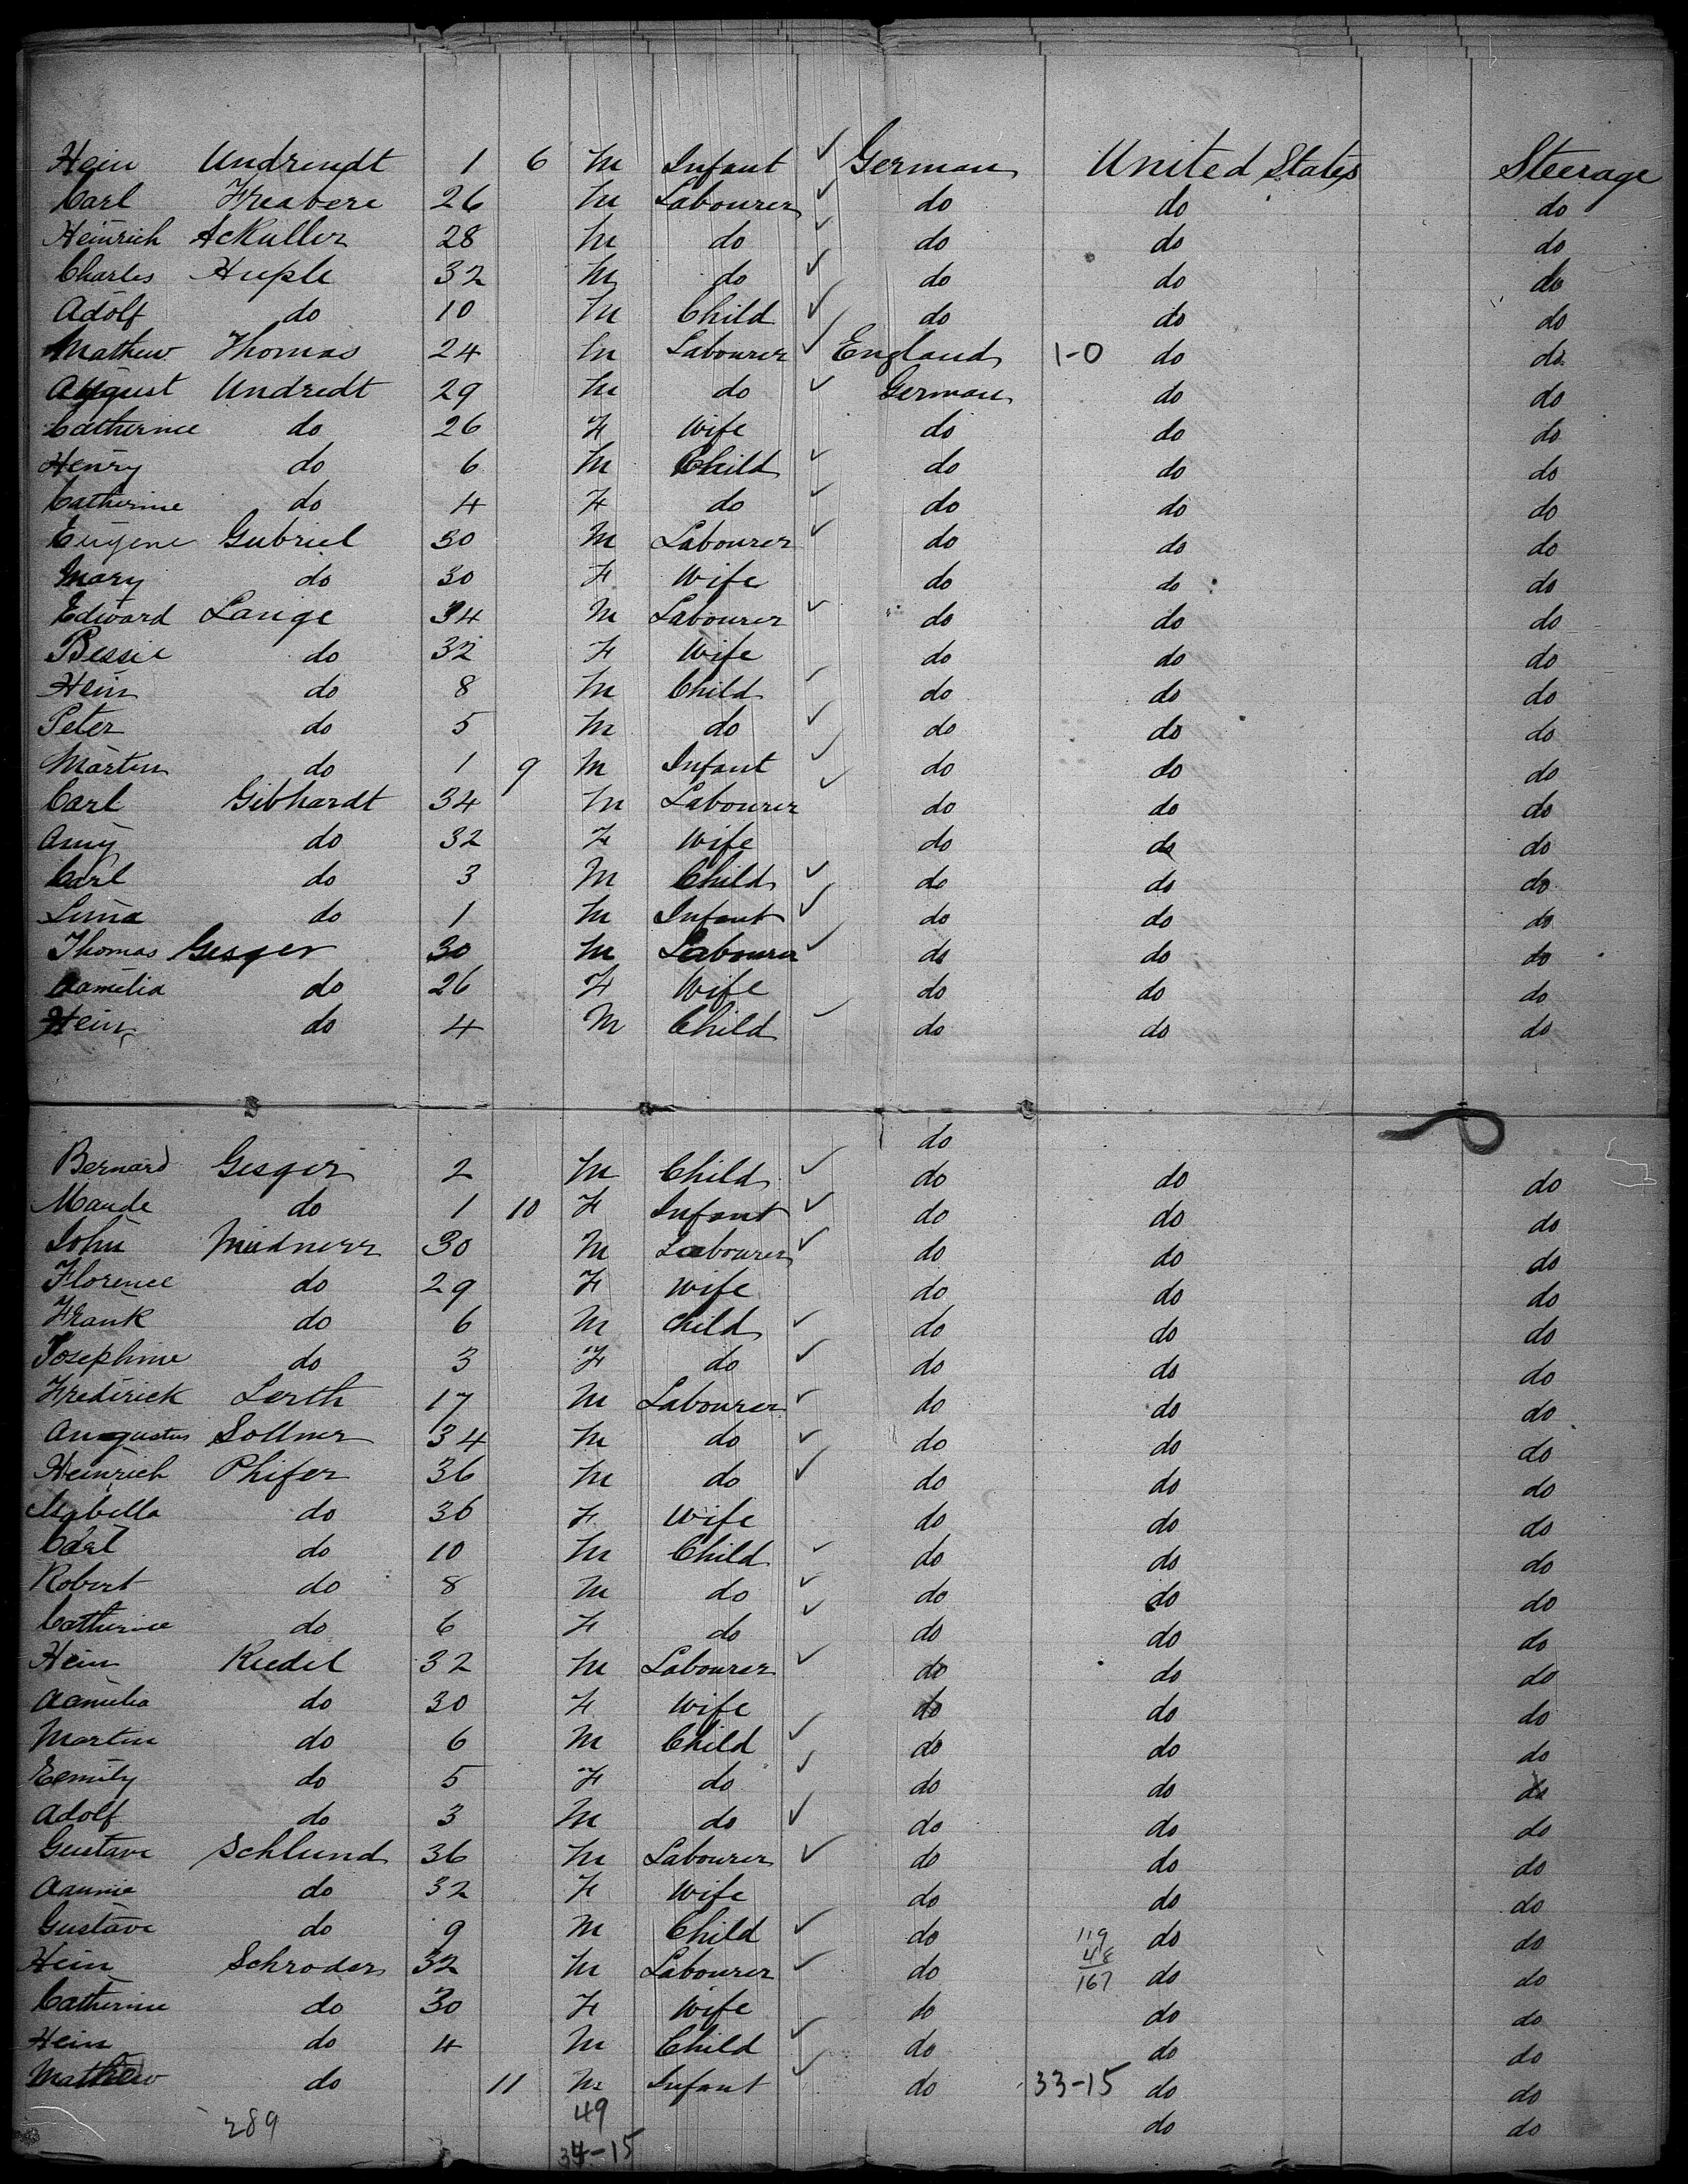 Hein Undrendt 1 6 M Infant ✓ German United States Steerage
Carl Freabere 26 M Labourer ✓ do do do
Heinrich Ackuller 28 M do ✓ do do do
Charles Huple 32 M do ✓ do do do
Adolf do 10 M Child ✓ do do do
Mathew Thomas 24 M Labourer ✓ England 1-0 do do
August Undredt 29 M do ✓ German do do
Catherine do 26 F Wife do do do
Henry do 6 M Child ✓ do do do
Catherine do 4 F do ✓ do do do
Eugene Gubriel 30 M Labourer ✓ do do do
Mary do 30 F Wife do do do
Edward Lange 34 M Labourer ✓ do do do
Bessie do 32 F Wife do do do
Hein do 8 M Child ✓ do do do
Peter do 5 M do ✓ do do do
Martin do 1 9 M Infant ✓ do do do
Carl Gibhardt 34 M Labourer ✓ do do do
Amy do 32 F Wife do do do
Carl do 3 M Child ✓ do do do
Lina do 1 M Infant ✓ do do do
Thomas Gesger 30 M Labourer ✓ do do do
Aamelia do 26 F Wife do do do
Hein do 4 M Child ✓ do do do
do
Bernard Gesger 2 M Child ✓ do do do
Maude do 1 10 F Infant ✓ do do do
John Midnerr 30 M Labourer ✓ do do do
Florence do 29 F Wife do do do
Frank do 6 M Child ✓ do do do
Josephine do 3 F do ✓ do do do
Frederick Lerth 17 M Labourer ✓ do do do
Augustus Sollmer 34 M do ✓ do do do
Heinrich Phifer 36 M do ✓ do do do
Isabella do 36 F Wife do do do
Carl do 10 M Child ✓ do do do
Robert do 8 M do ✓ do do do
Catherine do 6 F do ✓ do do do
Hein Riedel 32 M Labourer ✓ do do do
Aamelia do 30 F Wife do do do
Martin do 6 M Child ✓ do do do
Eemily do 5 F do ✓ do do do
Adolf do 3 M do ✓ do do do
Gustave Schlund 36 M Labourer ✓ do do do
Aannie do 32 F Wife do do do
Gustave do 9 M Child ✓ do 119 do do
48
Hein Schroder 32 M Labourer ✓ do 167 do do
Catherine do 30 F Wife do do do
Hein do 4 M Child ✓ do do do
Mathew do 11 M Infant ✓ do 33-15 do do
289 49 do do
34-15